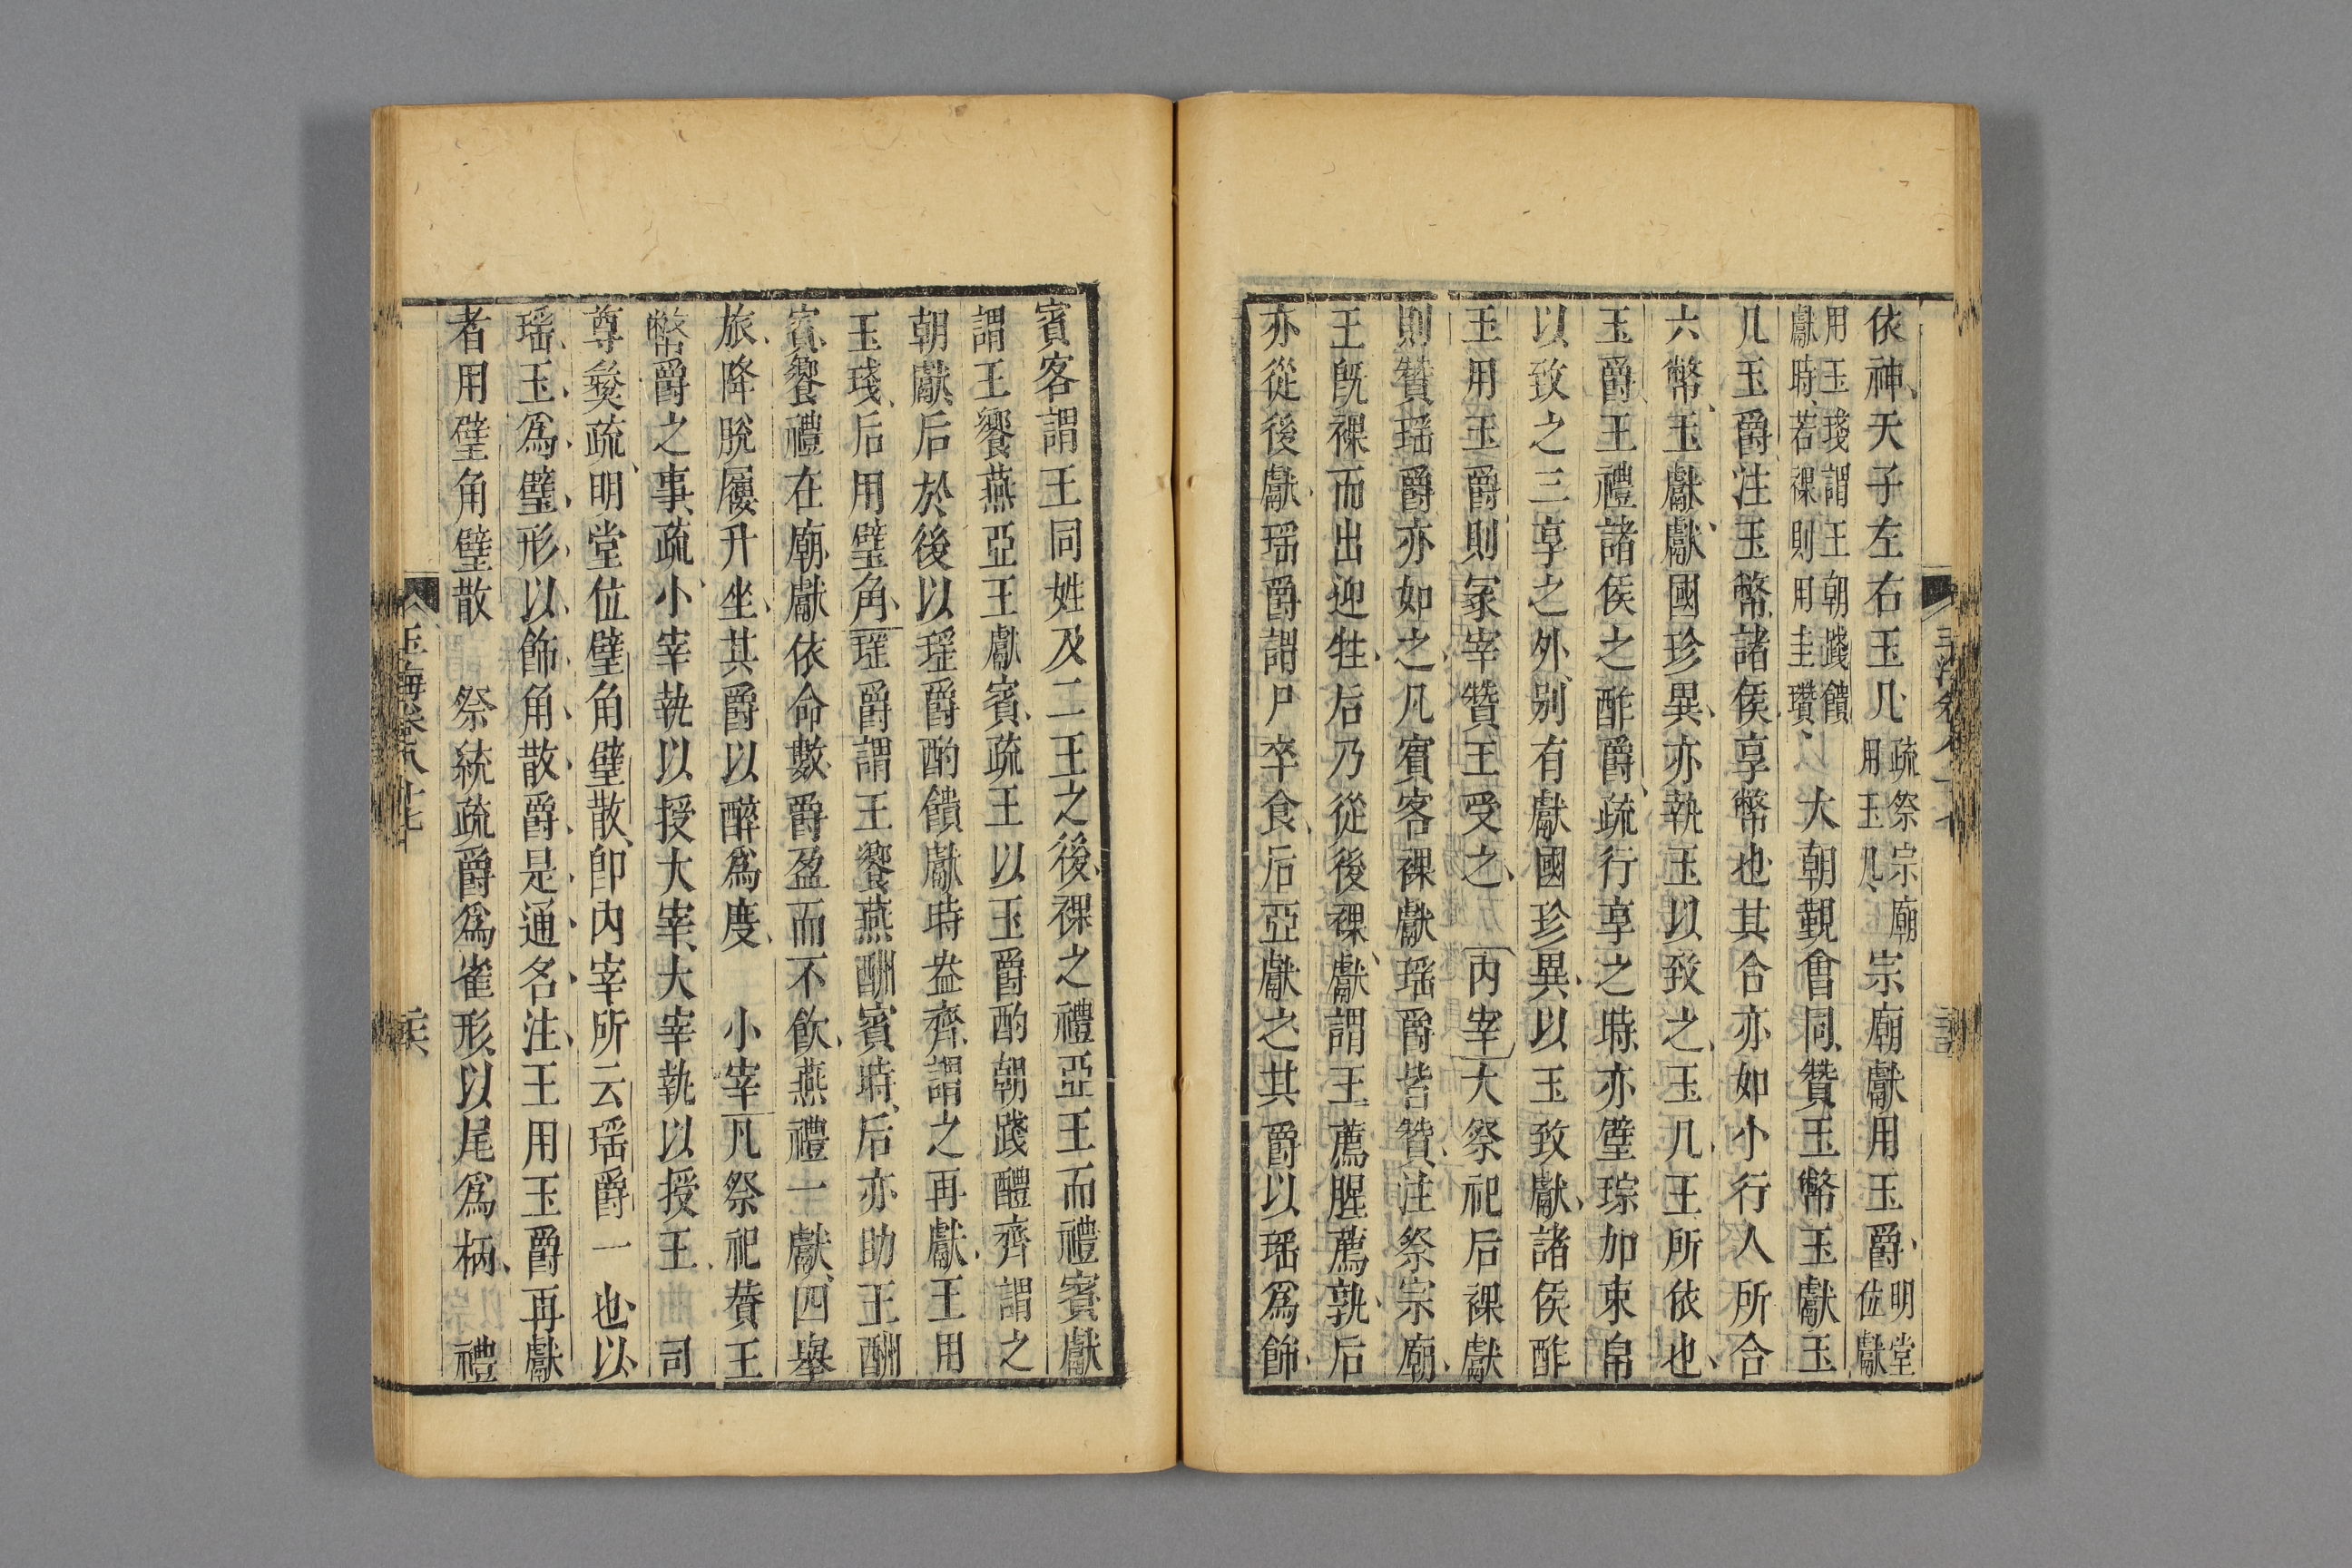 依神天子左右玉几疏祭宗廟用玉几宗廟獻用玉爵明堂位獻
用玉琖謂王朝踐饋獻時若祼則用圭瓚以大朝覲會同贊玉幣玉獻玉
几玉爵注玉幣諸侯享幣也其合亦如小行人所合
六幣玉獻獻國珍異亦執玉以致之玉几王所依也
玉爵王禮諸侯之酢爵疏行享之時亦璧琮加束帛
以致之三享之外别有獻國珍異以玉致獻諸侯酢
王用玉爵則冢宰贊王受之內宰大祭祀后祼獻
則贊瑶爵亦如之凡賓客祼獻瑶爵皆贊注祭宗廟
王旣祼而出迎牲后乃從後祼獻謂王薦腥薦孰后
亦從後獻瑶爵謂尸卒食后亞獻之其爵以瑶爲飾
賓客謂王同姓及二王之後祼之禮亞王而禮賓獻
謂王饗燕亞王獻賓疏王以玉爵酌朝踐醴齊謂之
朝獻后於後以瑶爵酌饋獻時盎齊謂之再獻王用
玉琖后用璧角瑶爵謂王饗燕酬賓時后亦助王酬
賓饗禮在廟獻依命數爵盈而不飲燕禮一獻四舉
旅降脫屨升坐其爵以醉爲度 小宰凡祭祀贊王
幣爵之事疏小宰執以授大宰大宰執以授王 司
尊彝疏明堂位璧角璧散卽內宰所云瑶爵一也以
瑶玉爲璧形以飾角散爵是通名注王用玉爵再獻
者用璧角璧散 祭統疏爵爲雀形以尾爲柄 禮
玉海卷八十七